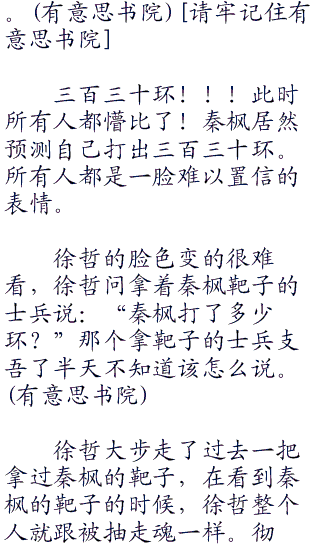 。(有意思书院)[请牢记住有
意思书院]
三百三十环！！！此时
所有人都懵比了！秦枫居然
预测自己打出三百三十环。
所有人都是一脸难以置信的
表情。
徐哲的脸色变的很难
看，徐哲问拿着秦枫靶子的
士兵说：“秦枫打了多少
环？”那个拿靶子的士兵支
吾了半天不知道该怎么说。
(有意思书院)
徐哲大步走了过去一把
拿过秦枫的靶子，在看到秦
枫的靶子的时候，徐哲整个
人就跟被抽走魂一样。彻